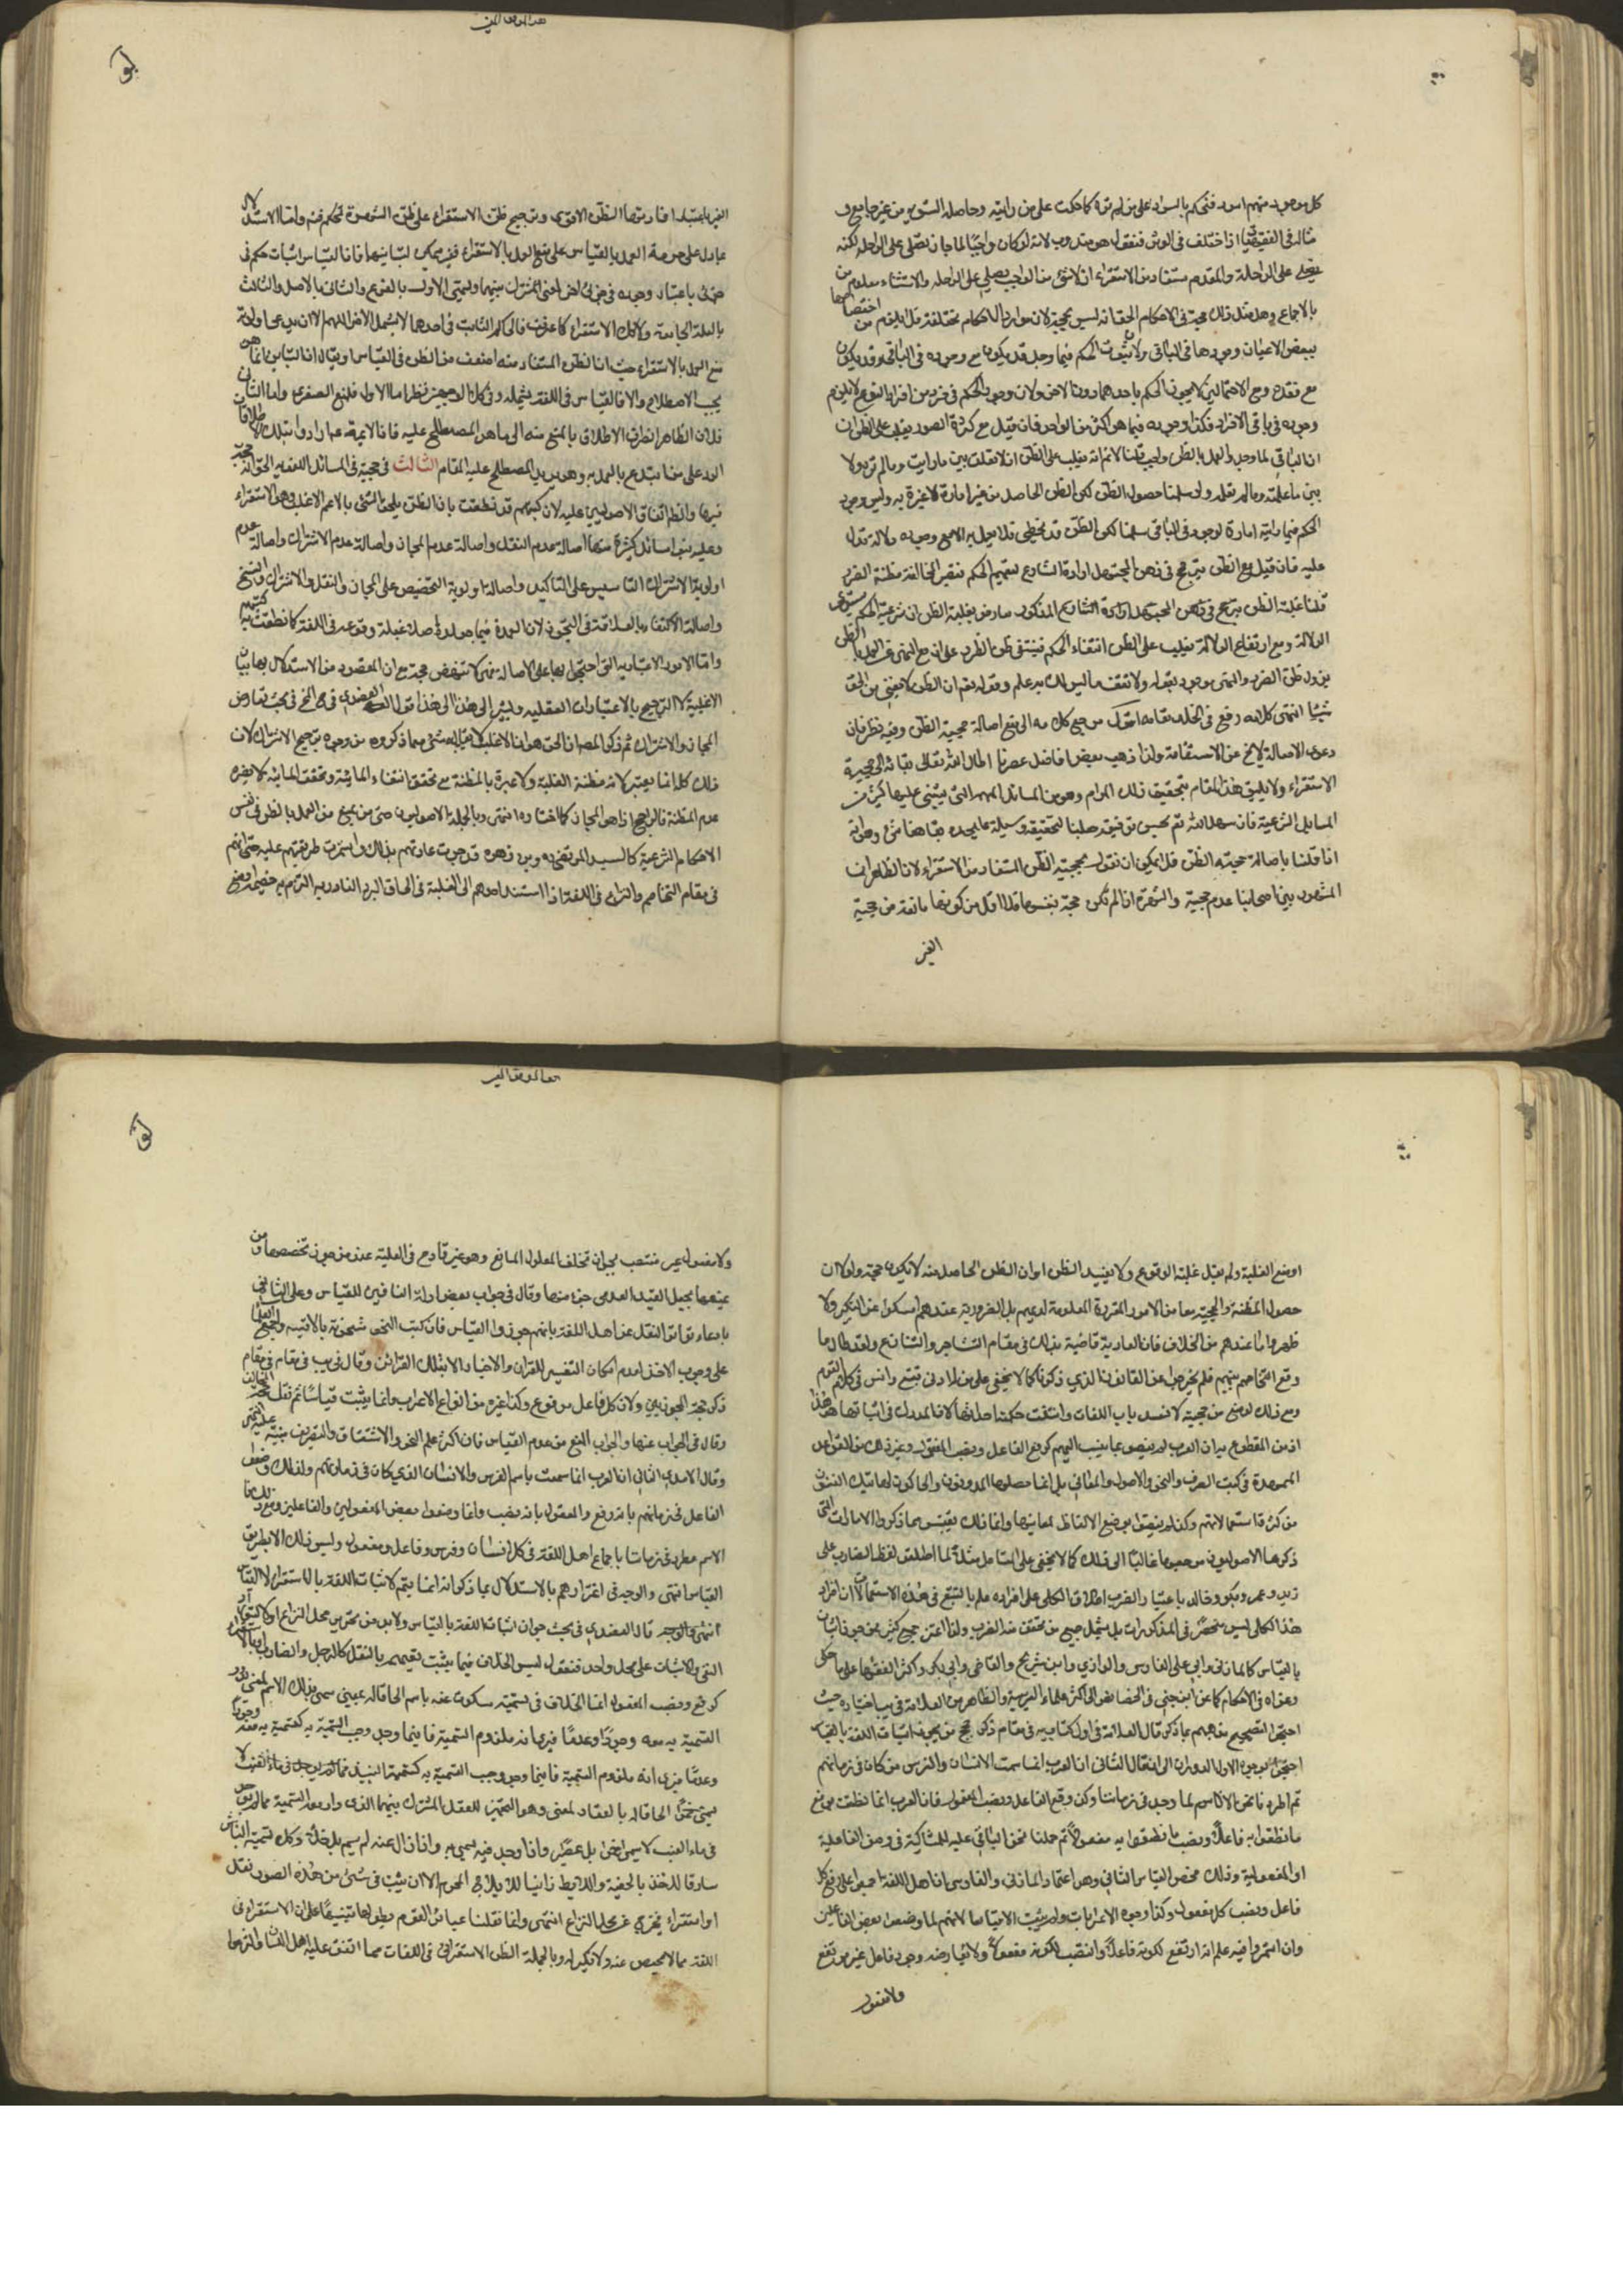 كل موجود منهم اسود فتحكم بالسواد على من لم تره كما حكمت على من رايته وحاصله التسوية من غير جامع و
مثاله في الفقهيات اذا اختلف في الوتر فنقول هو مندوب لانه لو كان واجبا لما جاز ان يصلى على الراحلة لكنه
يصلى على الراحلة والمقدم مستفاد من الاستقراء اذ لا شئ من الواجب يصلى على الراحلة والاستثناء معلوم من
بالاجماع وهل مثل ذلك حجة في الاحكام الحق انه ليس بحجة لان موارد الاحكام مختلفة فلا يلزم من اختصاصها
ببعض الاعيان وجودها في الباقي ولا ثبوت الحكم فيما وجد قد يكون مع وجوده في الباقي وقد يكون
مع فقده ومع الاحتمالين لا يجوز الحكم باحدهما دون الاخر ولان وجود الحكم في فرد من افراد النوع لا يلزم
وجوده في باقي الافراد فكذا وجوده فيما هو اكثر من الواحد فان قيل مع كثرة الصور يغلب على الظن ان
ان الباقي لما وجد والعمل بالظن واجب قلنا لا نم انه يغلب على الظن اذ لا تعلق بين ما رايت وما لم تر ولا
بين ما علمته وما لم تعلمه ولو سلمنا حصول الظن لكن الظن الحاصل من غير امارة لا عبرة به وليس وجود
الحكم فيما رايته امارة لوجوده في الباقي سلمنا لكن الظن قد يخطي فلا يعمل به الا مع وجود دلالة تدل
عليه فان قيل مع الظن يترجح في ذهن المجتهد ارادة الشارع تعميم الحكم فتصير المخالفة مظنة الضرر
قلنا غلبة الظن بترجح في ذهن المجتهد ارادة الشارع المذكور معارض بغلبة الظن ان شرعية الحكم
الدلالة ومع ارتفاع الدلالة يغلب على الظن انتفاء الحكم فينتفي ظن الضرر على ان مع النهى عن العمل بالظن
يزول ظن الضرر والنهى موجود بقوله ولا تقف ما ليس لك به علم وقوله نعم ان الظن لا يغني من الحق
شيئا انتهى كلامه رفع في الخلد مقامه اقول مرجع كلامه الى منع اصالة حجية الظن وفيه نظر فان
دعوى الاصالة لا يخ عن الاستقامة ولذا ذهب بعض افاضل عصرنا اطال الله تعالى بقائه الى حجية
الاستقراء ولا يليق هذا المقام بتحقيق ذلك المرام وهو من المسائل المهمة التي يبتنى عليها كثير من
المسايل الشرعية فان سهل الله تعم بحسن توفيقه جعلنا لتحقيقه وسيلة
اذا قلنا باصالة حجية الظن فلا يمكن ان نقول بحجية الظن المستفاد من الاستقراء لان الظاهر ان
المشهور بين اصحابنا عدم حجية والشهرة ان لم تكن حجة بنفسها فلا اقل من كونها مانعة من حجية
الغير
الغير باعتبار افادتها الظن الاقوى وترجيح ظن الاستقراء على ظن الشهرة تحكم فتم واما الاستدلال
بما دل على حرمة العمل بالقياس على منع العمل بالاستقراء فغير ممكن لتباينهما فان القياس اثبات حكم في
جزئي باعتبار وجوده في جزئي اخر لمعنى مشترك بينهما ويسمى الاول بالفرع والثاني بالاصل والثالث
بالعلة الجامعة ولا كك الاستقراء كما عرفت فالحكم الثابت في احدهما لا يشمل الاخر اللهم الا ان يدعى اولوية
منع العمل بالاستقراء حيث ان الظن المستفاد منه اضعف من الظن في القياس او يقال ان التباين انما هو
بحسب الاصطلاح والا فالقياس في اللغة يشمله وفي كلا الوجهين نظر اما الاول فلمنع الصغرى واما الثاني
فلان الظاهر انصراف الاطلاق بالمنع منه الى ما هو المصطلح عليه فان الائمة عم ارادوا بتلك الاطلاقات
الرد على من ابتدع بالعمل به وهو يريد المصطلح عليه المقام الثالث في حجيته في المسائل اللغوية الحق انه حجة
فيها والظاهر اتفاق الاصوليين عليه لان كتبهم قد نطقت بان الظن يلحق الشئ بالاعم الاغلب وهو الاستقراء
وعليه بنوا مسائل كثيرة منها اصالة عدم النقل واصالة عدم المجاز واصالة عدم الاشتراك واصالة عدم
اولوية الاشتراك التاسيس على التاكيد واصالة اولوية التخصيص على المجاز والنقل والاشتراك والنسخ
واصالة الاكتفاء بالعلاقة في التجوز لان العمدة فيما جعلوه اصلا غلبة وقوعه في اللغة كما نطقت به كتبهم
واما الامور الاعتبارية التي احتجوا بها على الاصالة فهي لا تنهض حجة مع ان المقصود من الاستدلال بها بيان
الاغلبية لا الترجيح بالاعتبارات العقلية وليشر الى هذا الى هذا قول العضدي في شرح المخ في بحث تعارض
المجاز والاشتراك ثم ذكر المصم ان الحق هو ان الاغلب لا يقابله شئ مما ذكروه من وجوه ترجيح الاشتراك لان
ذلك كله انما يعتبر لانه مظنة الغلبة ولا عبرة بالمظنة مع تحقق انتفاء المائنة وتحقق المائنة لا يضره
عدم المظنة فالراجح اذا هو المجاز كما اختاره انتهى وبالجملة الاصوليون حتى من يمنع من العمل بالظن في نفس
الاحكام الشرعية كالسيد المرتضى ره وبن زهره قد جرت عادتهم بذلك واستمرت طريقتهم عليه حتى انهم
في مقام التخاصم والنزاع في اللغة اذا استند احدهم الى الغلبة في الحاق الفرد النادر به التزم به خصمه او منع
اومنع الغلبة ولم يقل غلبة الوقوع ولا يفيد الظن او ان الظن الحاصل منه لا يكون حجة ولولا ان
حصول المظنة والحجية معا من الامور المقررة المعلومة لديهم بل الضرورية عندهم لما سكتوا عن النكير ولا
ظهروا ما عندهم من الخلاف فان العادة قاضية بذلك في مقام التشاجر والتنازع ولقد طال ما
وقع التخاصم بينهم فلم يخرجوا عن القانون الذي ذكرنا كما لا يخفى على من له ادنى تتبع وانس في كلام القوم
ومع ذلك لو منع من حجيته لانسد باب اللغات وانتفت حكمة احداثها لان المدرك في اثباتها هو هذا
اذ من المقطوع به ان العرب لم ينصوا بما ينسب اليهم كرفع الفاعل ونصب المفعول وغير ذلك من القواعد
الممهدة في كتب الصرف والنحو والاصول والمعاني بل انما حصلها المدونون والحاكون لهاتيك الفنون
من كثرة استعمالاتهم وكذا لم ينصوا بوضع الالفاظ لمعانيها وانما ذلك يقتبس مما ذكروا الامارات التي
ذكرها الاصوليون مرجعها غالبا الى ذلك كما لا يخفى على المتامل مثلا لما اطلق لفظ الضارب على
زيد وعمرو وبكر وخالد باعتبار الضرب اطلاق الكلي على افراده علم بالتتبع في هذه الاستعمالات ان افراد
هذا الكلي ليس منحصر في المذكورات بل يشمل جميع من تحقق منه الضرب ولذا اغتر جمع كثير ممن جوز اثبات
بالقياس كالمازني وابي علي الفارسي والرازي وابن شريح والقاضي وابي بكر واكثر الفقهاء على ما حكى
وعزاه في الاحكام كما عن ابن جني في الخصايص الى اكثر علماء العربية والظاهر من العلامة في يب اختياره حيث
احتجوا لتصحيح مذهبهم بما ذكر قال العلامة في اول كتابيه في مقام ذكر حجج من يجوز اثبات اللغة بالقياس
احتجوا بوجوه الاول الدوران الى ان قال الثاني ان العرب انما سمت الانسان والفرس من كان في زمانهم
ثم اطرد فانحن الان الاسم لما وجد في زماننا وكذا رفع الفاعل ونصب المفعول فان العرب انما نطقت برفع
ما نطقوا به فاعلا ونصب ما نطقوا به مفعولا ثم حملنا نحن الباقي عليه للمشاركة في وصف الفاعلية
او المفعولية وذلك محض القياس الثاني وهو اعتماد المازني والفارسي ان اهل اللغة اجمعوا على رفع كل
فاعل ونصب كل مفعول وكذا وجوه الاعرابات ولم يثبت الا قياسا لانهم لما وضعوا بعض الفاعلين
وان استمروا فيه علم انه ارتفع لكونه فاعلا وانتصب لكونه مفعولا ولا يعارضه وجود فاعل غير مرتفع
ولا مفعول
ولا مفعول غير منتصب بجواز تخلف المعلول لمانع وهو غير قادح في العلية عند من جوز تخصصها ومن
يمنعها يجعل القيد العدمي جزء منها وقال في جواب بعض ادلة النافين للقياس وعلى الثاني
بادعاء تواتر النقل عن اهل اللغة بانهم جوزوا القياس فان كتب النحو مشحونة بالاقيسة واجمع العلماء
على وجوب الاخذ لعدم امكان التفسير للقران والاخبار الا بتلك القرائن وقال في يب في مقام في مقام
ذكر حجة المجوزين ولان كل فاعل مرفوع وكذا غيره من انواع الاعراب وانما يثبت قياسا ثم نقل حجة المخالف
وقال في الجواب عنها والجواب المنع من عدم القياس فان اكثر علم النحو والاشتقاق والتصريف مبنية عليه انتهى
وقال الامدي الثاني ان العرب انما سمت باسم الفرس والانسان الذي كان في زمانهم ولذلك وصف
الفاعل في زمانهم بانه رفع والمفعول بانه نصب وانما وصفوا بعض المفعولين والفاعلين
الاسم مطرد في زماننا باجماع اهل اللغة في كل انسان وفرس وفاعل ومفعول وليس ذلك الا بطريق
القياس انتهى والوجه في اغترارهم بالاستدلال بما ذكر انه انما يتم لاثبات اللغة بالاستقراء لا القياس
انتهى والوجه قال العضدي في بحث جواز اثبات اللغة بالقياس ولا بد من تحرير محل النزاع اولا ليتوارد
النفي والاثبات على محل واحد فنقول ليس الخلاف فيما يثبت تعميمه بالنقل كالرجل والضارب او بالاستقراء
كرفع ونصب المفعول انما الخلاف في تسمية مسكوت عنه باسم الحاقا له بمعنى سمي بذلك الاسم لمعنى يدور
التسمية به معه وجودا وعدما فيرى انه ملزوم التسمية فاينما وجد وجب التسمية به كتسمية
وعدما فيرى انه ملزوم التسمية فاينما وجد وجب التسمية به كتسمية النبيذ
يسمى خمرا الحاقا له بالعقار لمعنى وهو التخمر للعقل المشترك بينهما الذي دار معه التسمية فما لم يوجد
في ماء العنب لا يسمى خمرا بل عصيرا واذا وجد فيه يسمى به واذا زال عنه لم يسم به بل خلا وكك تسمية النباش
سارقا للاخذ بالخفية واللائط زانيا للايلاج المحرم الا ان يثبت في شئ من هذه الصور نقل
او استقراء فيخرج عن محل النزاع انتهى وانما نقلنا عبائر القوم بطولها تنبيها على ان الاستقراء في
اللغة مما لا محيص عنه ولا نكير له وبالجملة الظن الاستقرائي في اللغات مما اتفق عليه اهل اللسان والتزموا